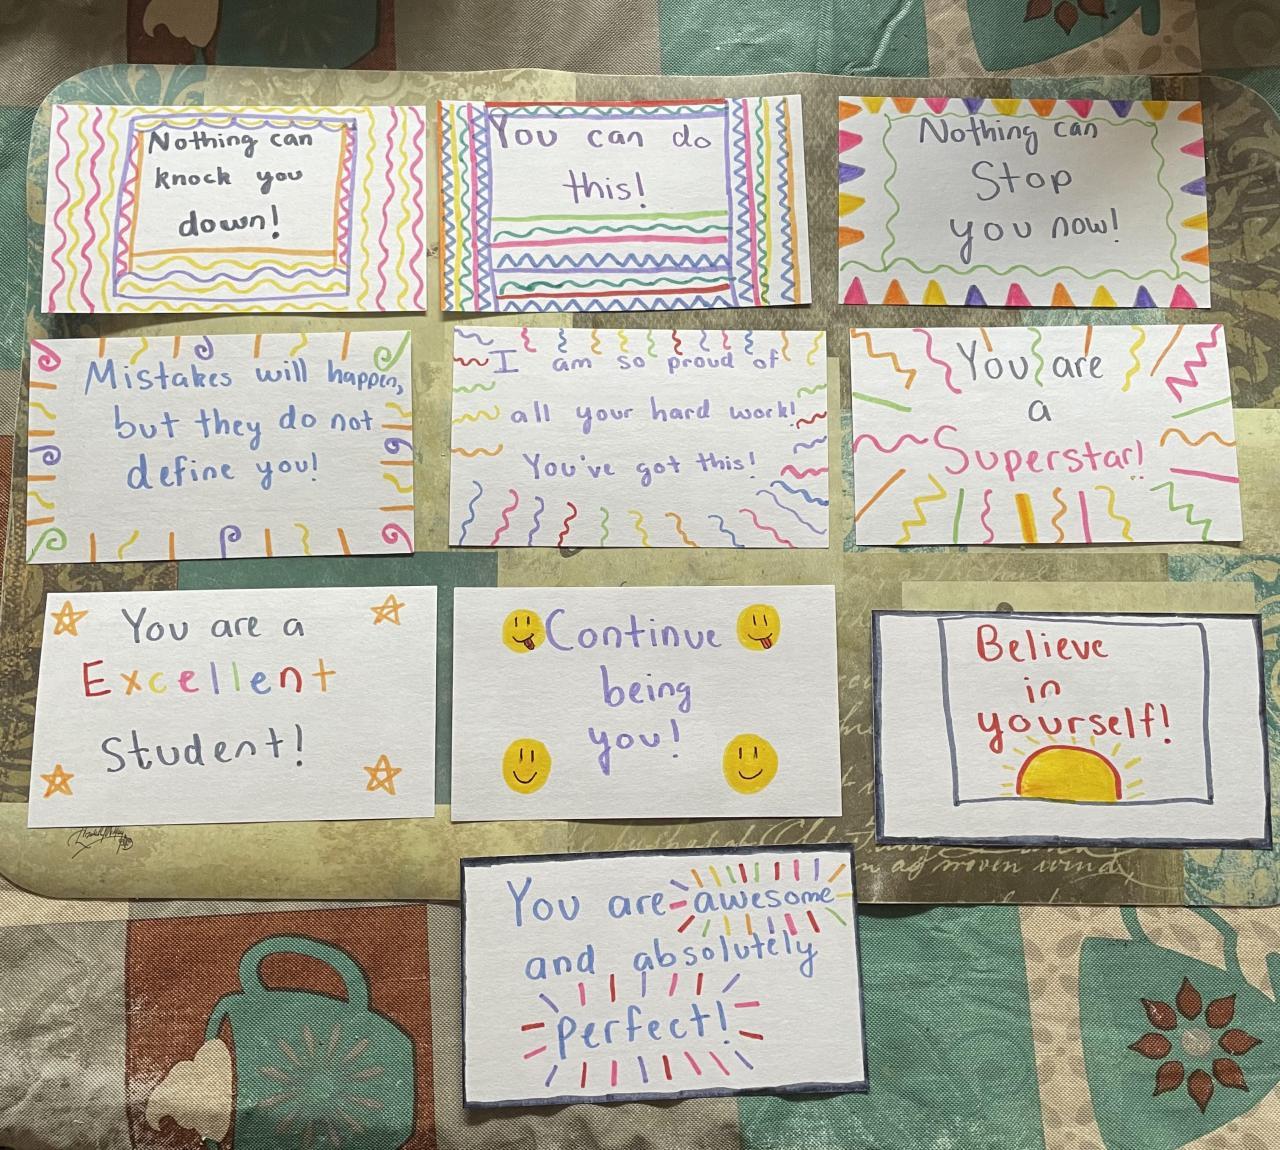 Nothing can
knock you
down!
You can do
this!
Nothing can
Stop
you now!
Mistakes will happen,
but they do not
define you!
I am so proud of
all your hard work!
You've got this!
You are
a
Superstar!
You are a
Excellent
Student!
Continue
being
you!
Believe
in
yourself!
You are awesome
and absolutely
perfect!